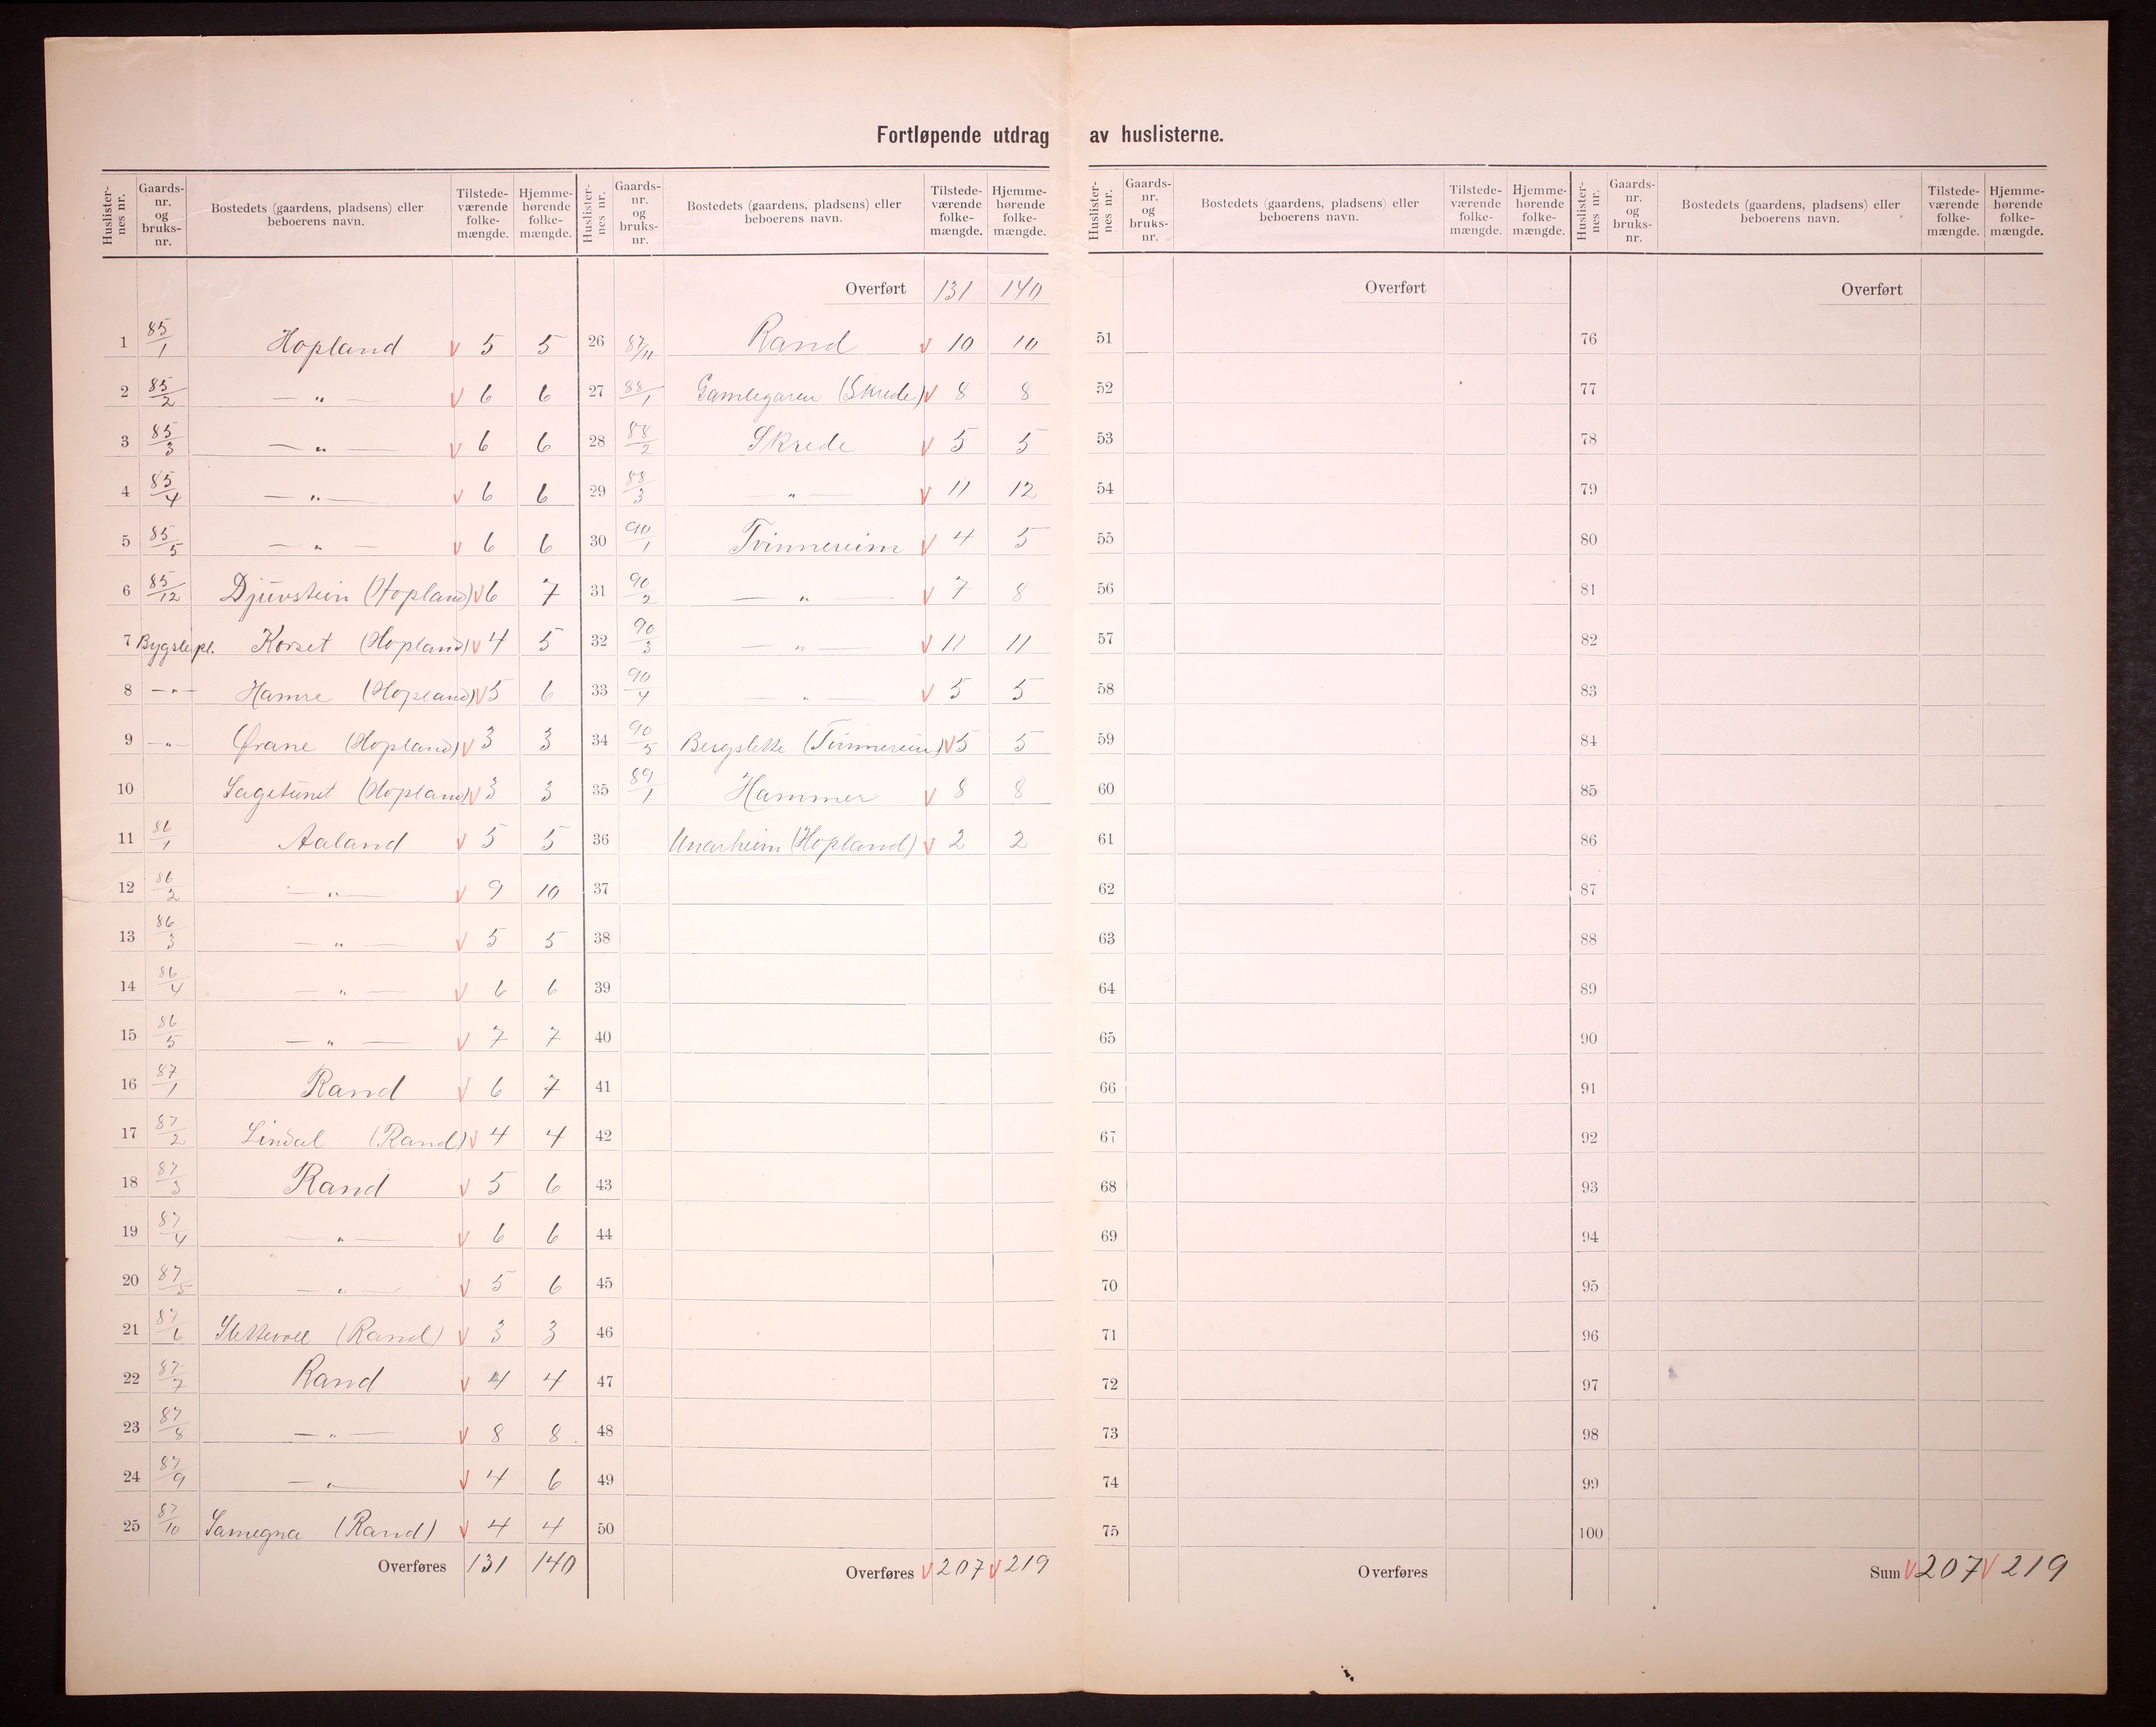 Fortløpende utdrag av huslisterne.
Huslister-nes nr. Gaards-nr. og bruks-nr. Bostedets (gaardens, pladsens) eller beboerens navn. Tilstede-værende folke-mængde. Hjemme-hørende folke-mængde.
1 85/1 Hopland V 5 5
2 85/2 — „ — V 6 6
3 85/3 — „ — V 6 6
4 85/4 — „ — V 6 6
5 85/5 — „ — V 6 6
6 85/12 Djuvstein (Hopland) V 6 7
7 Bygslepl. Korset (Hopland) V 4 5
8 — „ — Hamre (Hopland) V 5 6
9 — „ — Ørane (Hopland) V 3 3
10 Sagetunet (Hopland) V 3 3
11 86/1 Aaland V 5 5
12 86/2 — „ — V 9 10
13 86/3 — „ — V 5 5
14 86/4 — „ — V 6 6
15 86/5 — „ — V 7 7
16 87/1 Rand V 6 7
17 87/2 Lindal (Rand) V 4 4
18 87/3 Rand V 5 6
19 87/4 — „ — V 6 6
20 87/5 — „ — V 5 6
21 87/6 Slettevoll (Rand) V 3 3
22 87/7 Rand V 4 4
23 87/8 — „ — V 8 8
24 87/9 — „ — V 4 6
25 87/10 (Rand) V 4 4
Overføres 131 140
Huslister-nes nr. Gaards-nr. og bruks-nr. Bostedets (gaardens, pladsens) eller beboerens navn. Tilstede-værende folke-mængde. Hjemme-hørende folke-mængde.
Overført 131 140
26 87/11 Rand V 10 10
27 88/1 Gamlegaren (Skrede) V 8 8
28 88/2 Skrede V 5 5
29 88/3 — „ — V 11 12
30 90/1 Tvinnereim V 4 5
31 90/2 — „ — V 7 8
32 90/3 — „ — V 11 11
33 90/4 — „ — V 5 5
34 90/5 Bergslette (Tvinnereim) V 5 5
35 89/1 Hammer V 8 8
36 Unarheim (Hopland) V 2 2
37
38
39
40
41
42
43
44
45
46
47
48
49
50
Overføres V 207 V 219
Huslister-nes nr. Gaards-nr. og bruks-nr. Bostedets (gaardens, pladsens) eller beboerens navn. Tilstede-værende folke-mængde. Hjemme-hørende folke-mængde.
Overført
51
52
53
54
55
56
57
58
59
60
61
62
63
64
65
66
67
68
69
70
71
72
73
74
75
Overføres
Huslister-nes nr. Gaards-nr. og bruks-nr. Bostedets (gaardens, pladsens) eller beboerens navn. Tilstede-værende folke-mængde. Hjemme-hørende folke-mængde.
Overført
76
77
78
79
80
81
82
83
84
85
86
87
88
89
90
91
92
93
94
95
96
97
98
99
100
Sum V 207 V 219